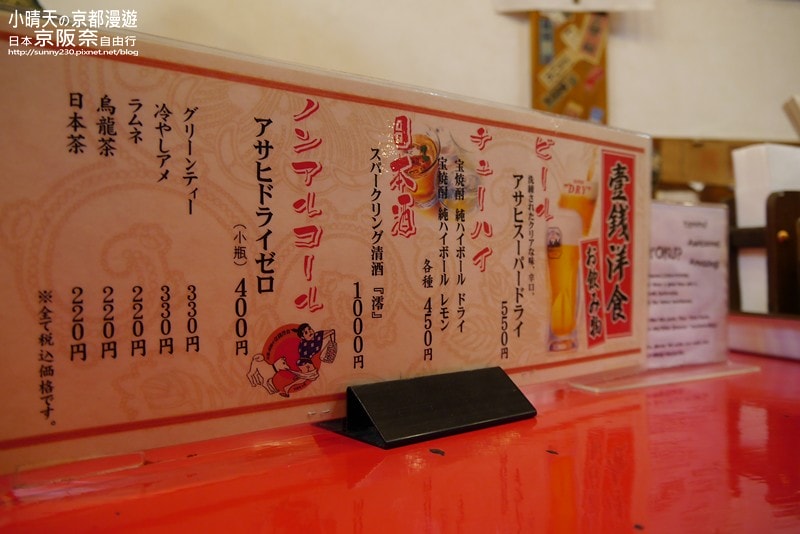 小晴天の京都漫遊
日本京阪奈自由行
http://sunny230.pixnet.net/blog
壹銭洋食
お飲み物
ビール
洗練されたクリアな味、辛口。
アサヒスーパードライ
550円
チューハイ
宝焼酎 純ハイボール ドライ
宝焼酎 純ハイボール レモン
各種 450円
日本酒
スパークリング清酒『澪』
1000円
ノンアルコール
アサヒドライゼロ
(小瓶) 400円
グリーンティー 330円
冷やしアメ 330円
ラムネ 220円
烏龍茶 220円
日本茶 220円
※全て税込価格です。
"DRY"